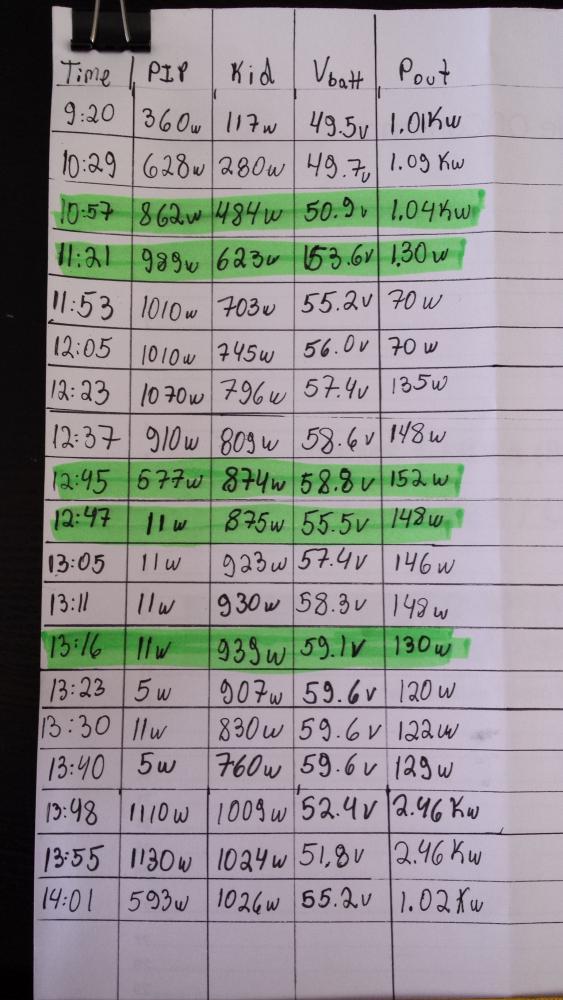 Time PIP Kid Vbatt Pout
9:20 360w 117w 49.5v 1.01Kw
10:29 628w 280w 49.7v 1.09 Kw
10:57 862w 484w 50.9v 1.04Kw
11:21 989w 623w 53.6v 1,30w
11:53 1010w 703w 55.2v 70w
12:05 1010w 745w 56.0v 70w
12:23 1070w 796w 57.4v 135w
12:37 910w 809w 58.6v 148w
12:45 677w 874w 58.8v 152w
12:47 11w 875w 55.5v 148w
13:05 11w 923w 57.4v 146w
13:11 11w 930w 58.3v 148w
13:16 11w 939w 59.1v 130w
13:23 5w 907w 59.6v 120w
13:30 11w 830w 59.6v 122w
13:40 5w 760w 59.6v 129w
13:48 1110w 1009w 52.4v 2.46 Kw
13:55 1130w 1024w 51,8v 2.46 Kw
14:01 593w 1026w 55.2v 1.02 Kw